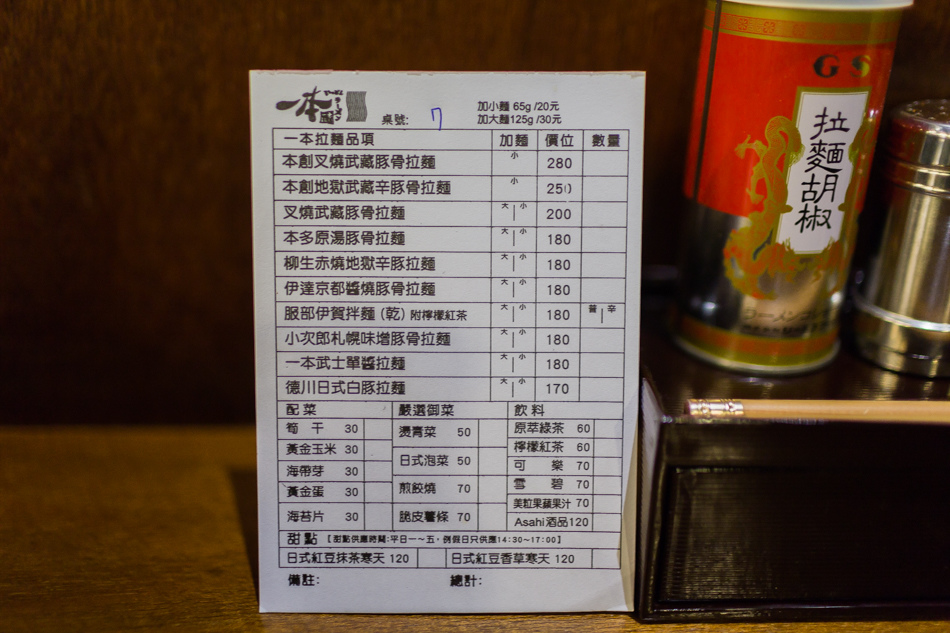 一本風 ラーメン
桌號: 7
加小麵 65g /20元
加大麵125g /30元
一本拉麵品項 加麵 價位 數量
本創叉燒武藏豚骨拉麵 小 280
本創地獄武藏辛豚骨拉麵 小 250
叉燒武藏豚骨拉麵 大｜小 200
本多原湯豚骨拉麵 大｜小 180
柳生赤燒地獄辛豚拉麵 大｜小 180
伊達京都醬燒豚骨拉麵 大｜小 180
服部伊賀拌麵 (乾) 附檸檬紅茶 大｜小 180 普｜辛
小次郎札幌味增豚骨拉麵 大｜小 180
一本武士單醬拉麵 大｜小 180
德川日式白豚拉麵 大｜小 170
配菜 嚴選御菜 飲料
筍干 30
黃金玉米 30
海帶芽 30
黃金蛋 30
海苔片 30
燙青菜 50
日式泡菜 50
煎餃燒 70
脆皮薯條 70
原萃綠茶 60
檸檬紅茶 60
可樂 70
雪碧 70
美粒果蘋果汁 70
Asahi酒品120
甜點 [甜點供應時間:平日一～五，例假日只供應14:30~17:00]
日式紅豆抹茶寒天 120 日式紅豆香草寒天 120
備註: 總計:
GS
拉麵胡椒
ラーメンコショー